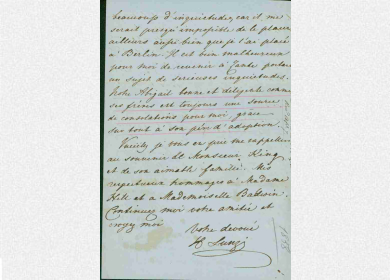 beaucoup d'inquietudes, car il me
serait presqu'impossible de le placer
ailleurs aussi bien que je l'ai placé
à Berlin. Il est bien malheureux
pour moi de revenir à Zante
un sujet de serieuses inquietudes.
Notre Abigail bonne et comme
ses frères est toujours une source
de consolations pour moi
surtout à son père d'adoption.
Veuillez je vous en prie me rappeller
au souvenir de Monsieur King
et de son aimable famille. Mes
respectueux hommages à Madame
Hill et à Mademoiselle Baldwin.
Continuez moi votre amitié et
croyez moi
Votre devoué